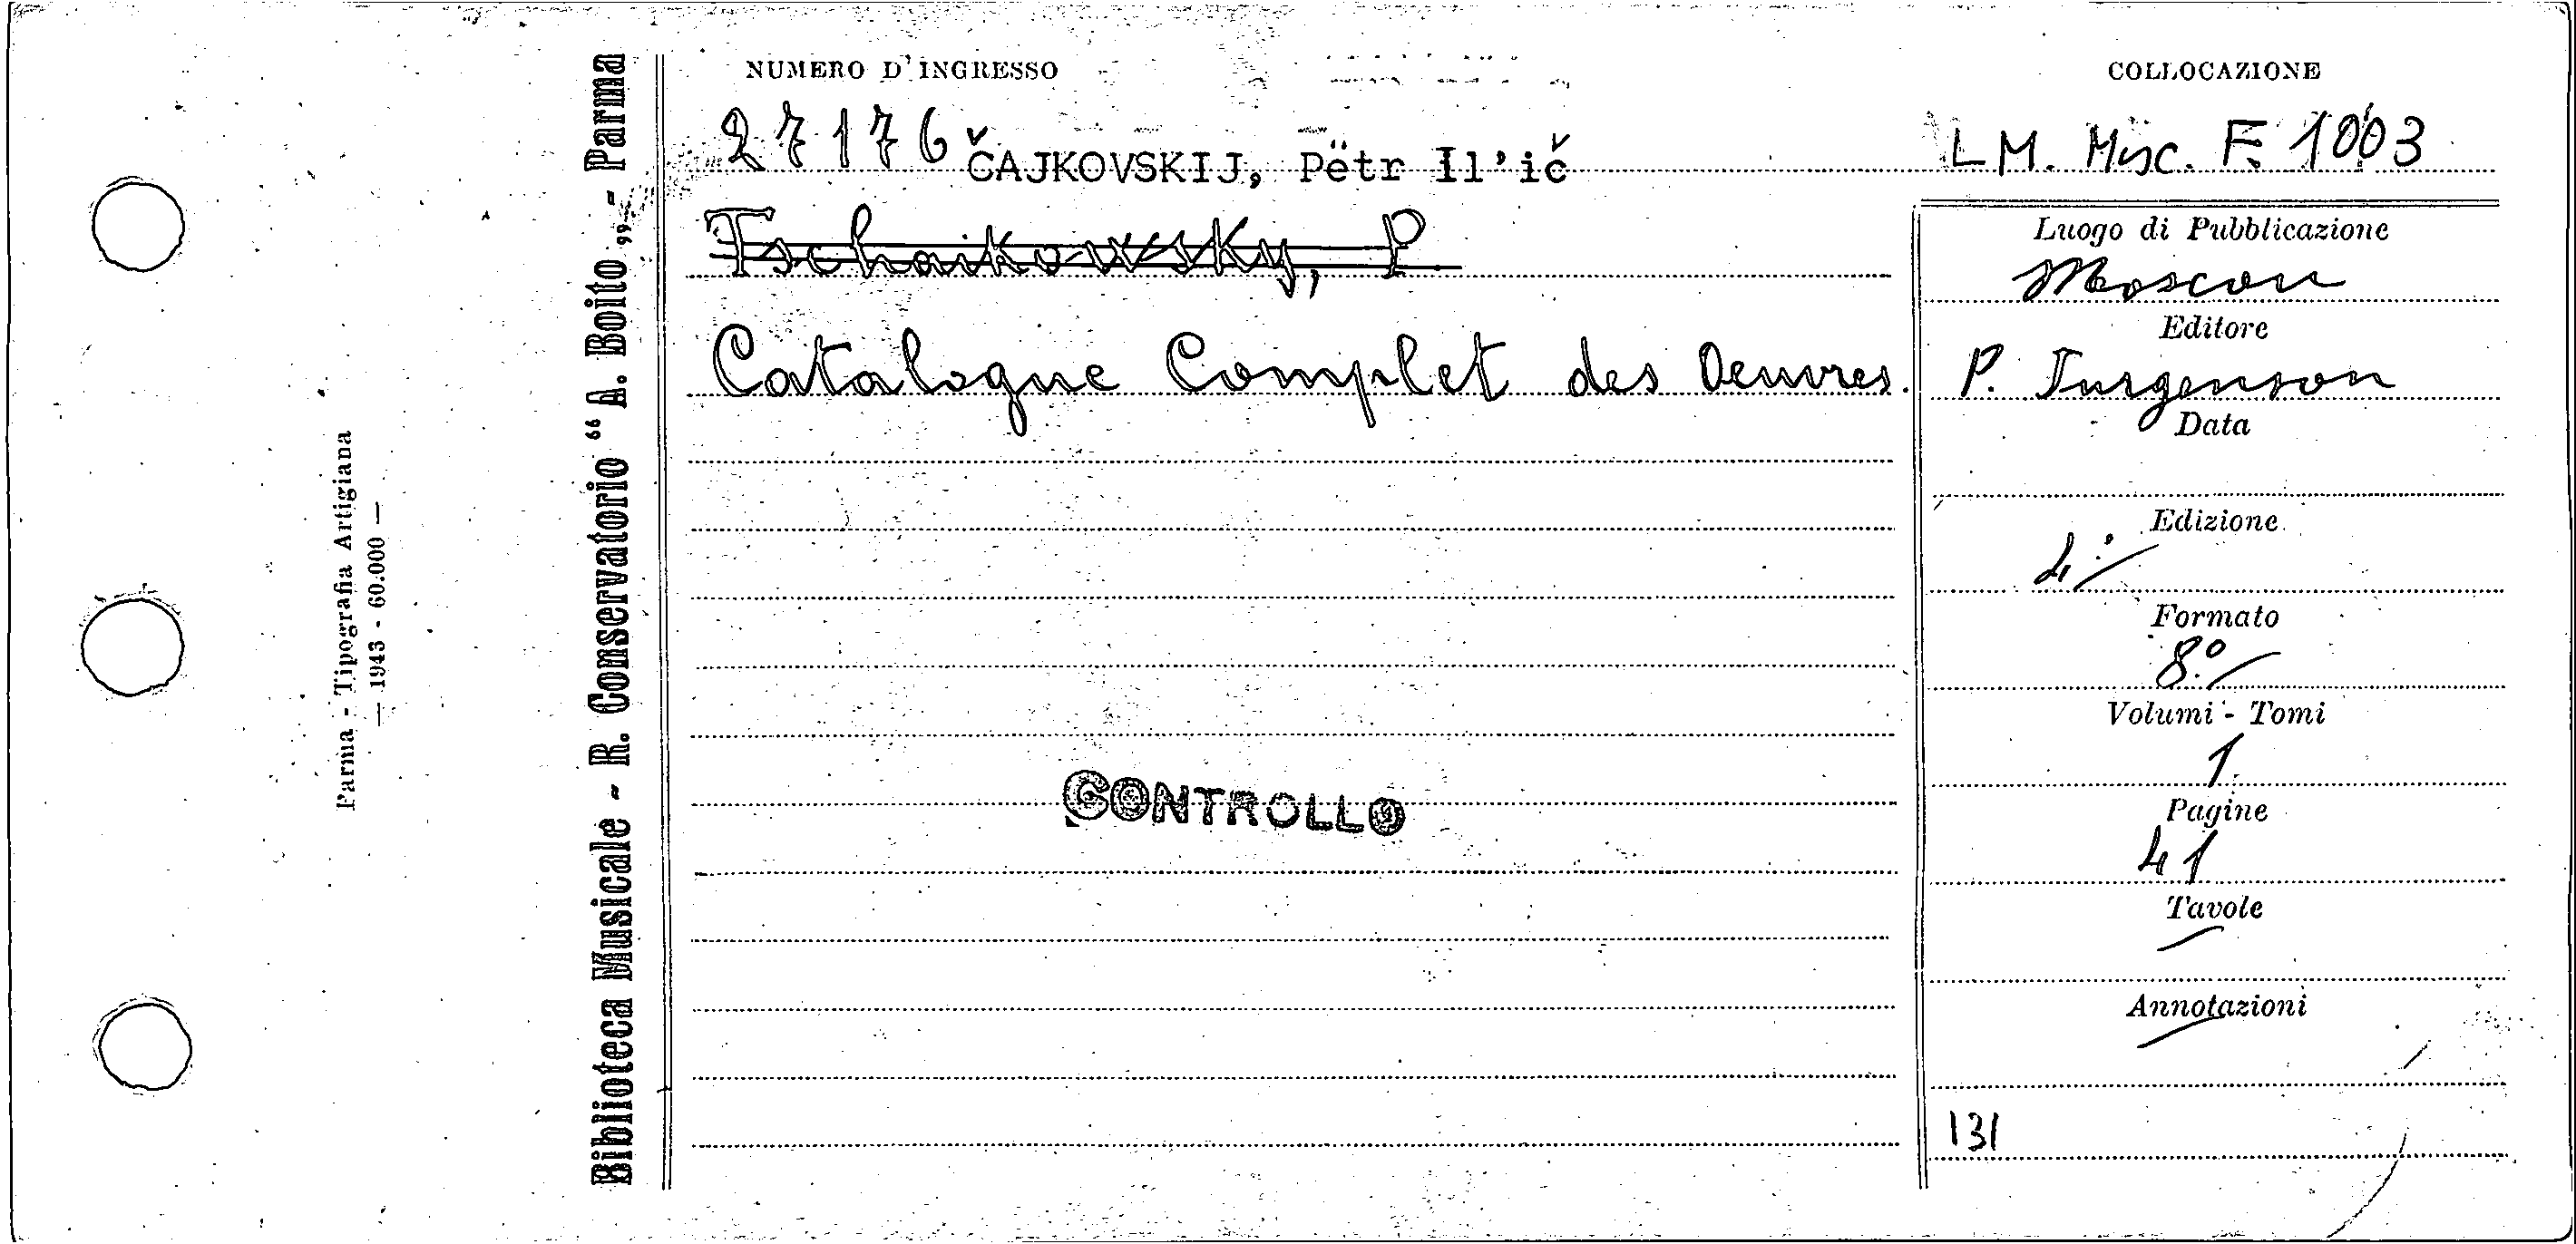 NUMERO D'INGRESSO
COLLOCAZIONE
27176 ČAJKOVSKIJ, Pëtr Il'ič
LM. Misc. F. 1003
Tschaikowsky, P
Catalogue Complet des Oeuvres.
Luogo di Pubblicazione
Moscou
Editore
P. Jurgenson
Data
Edizione
4ª
Formato
8º
Volumi - Tomi
1
Pagine
41
Tavole
Annotazioni
131
CONTROLLO
Biblioteca Musicale - R. Conservatorio “A. Boito„ - Parma
Parma - Tipografia Artigiana
— 1943 - 60.000 —